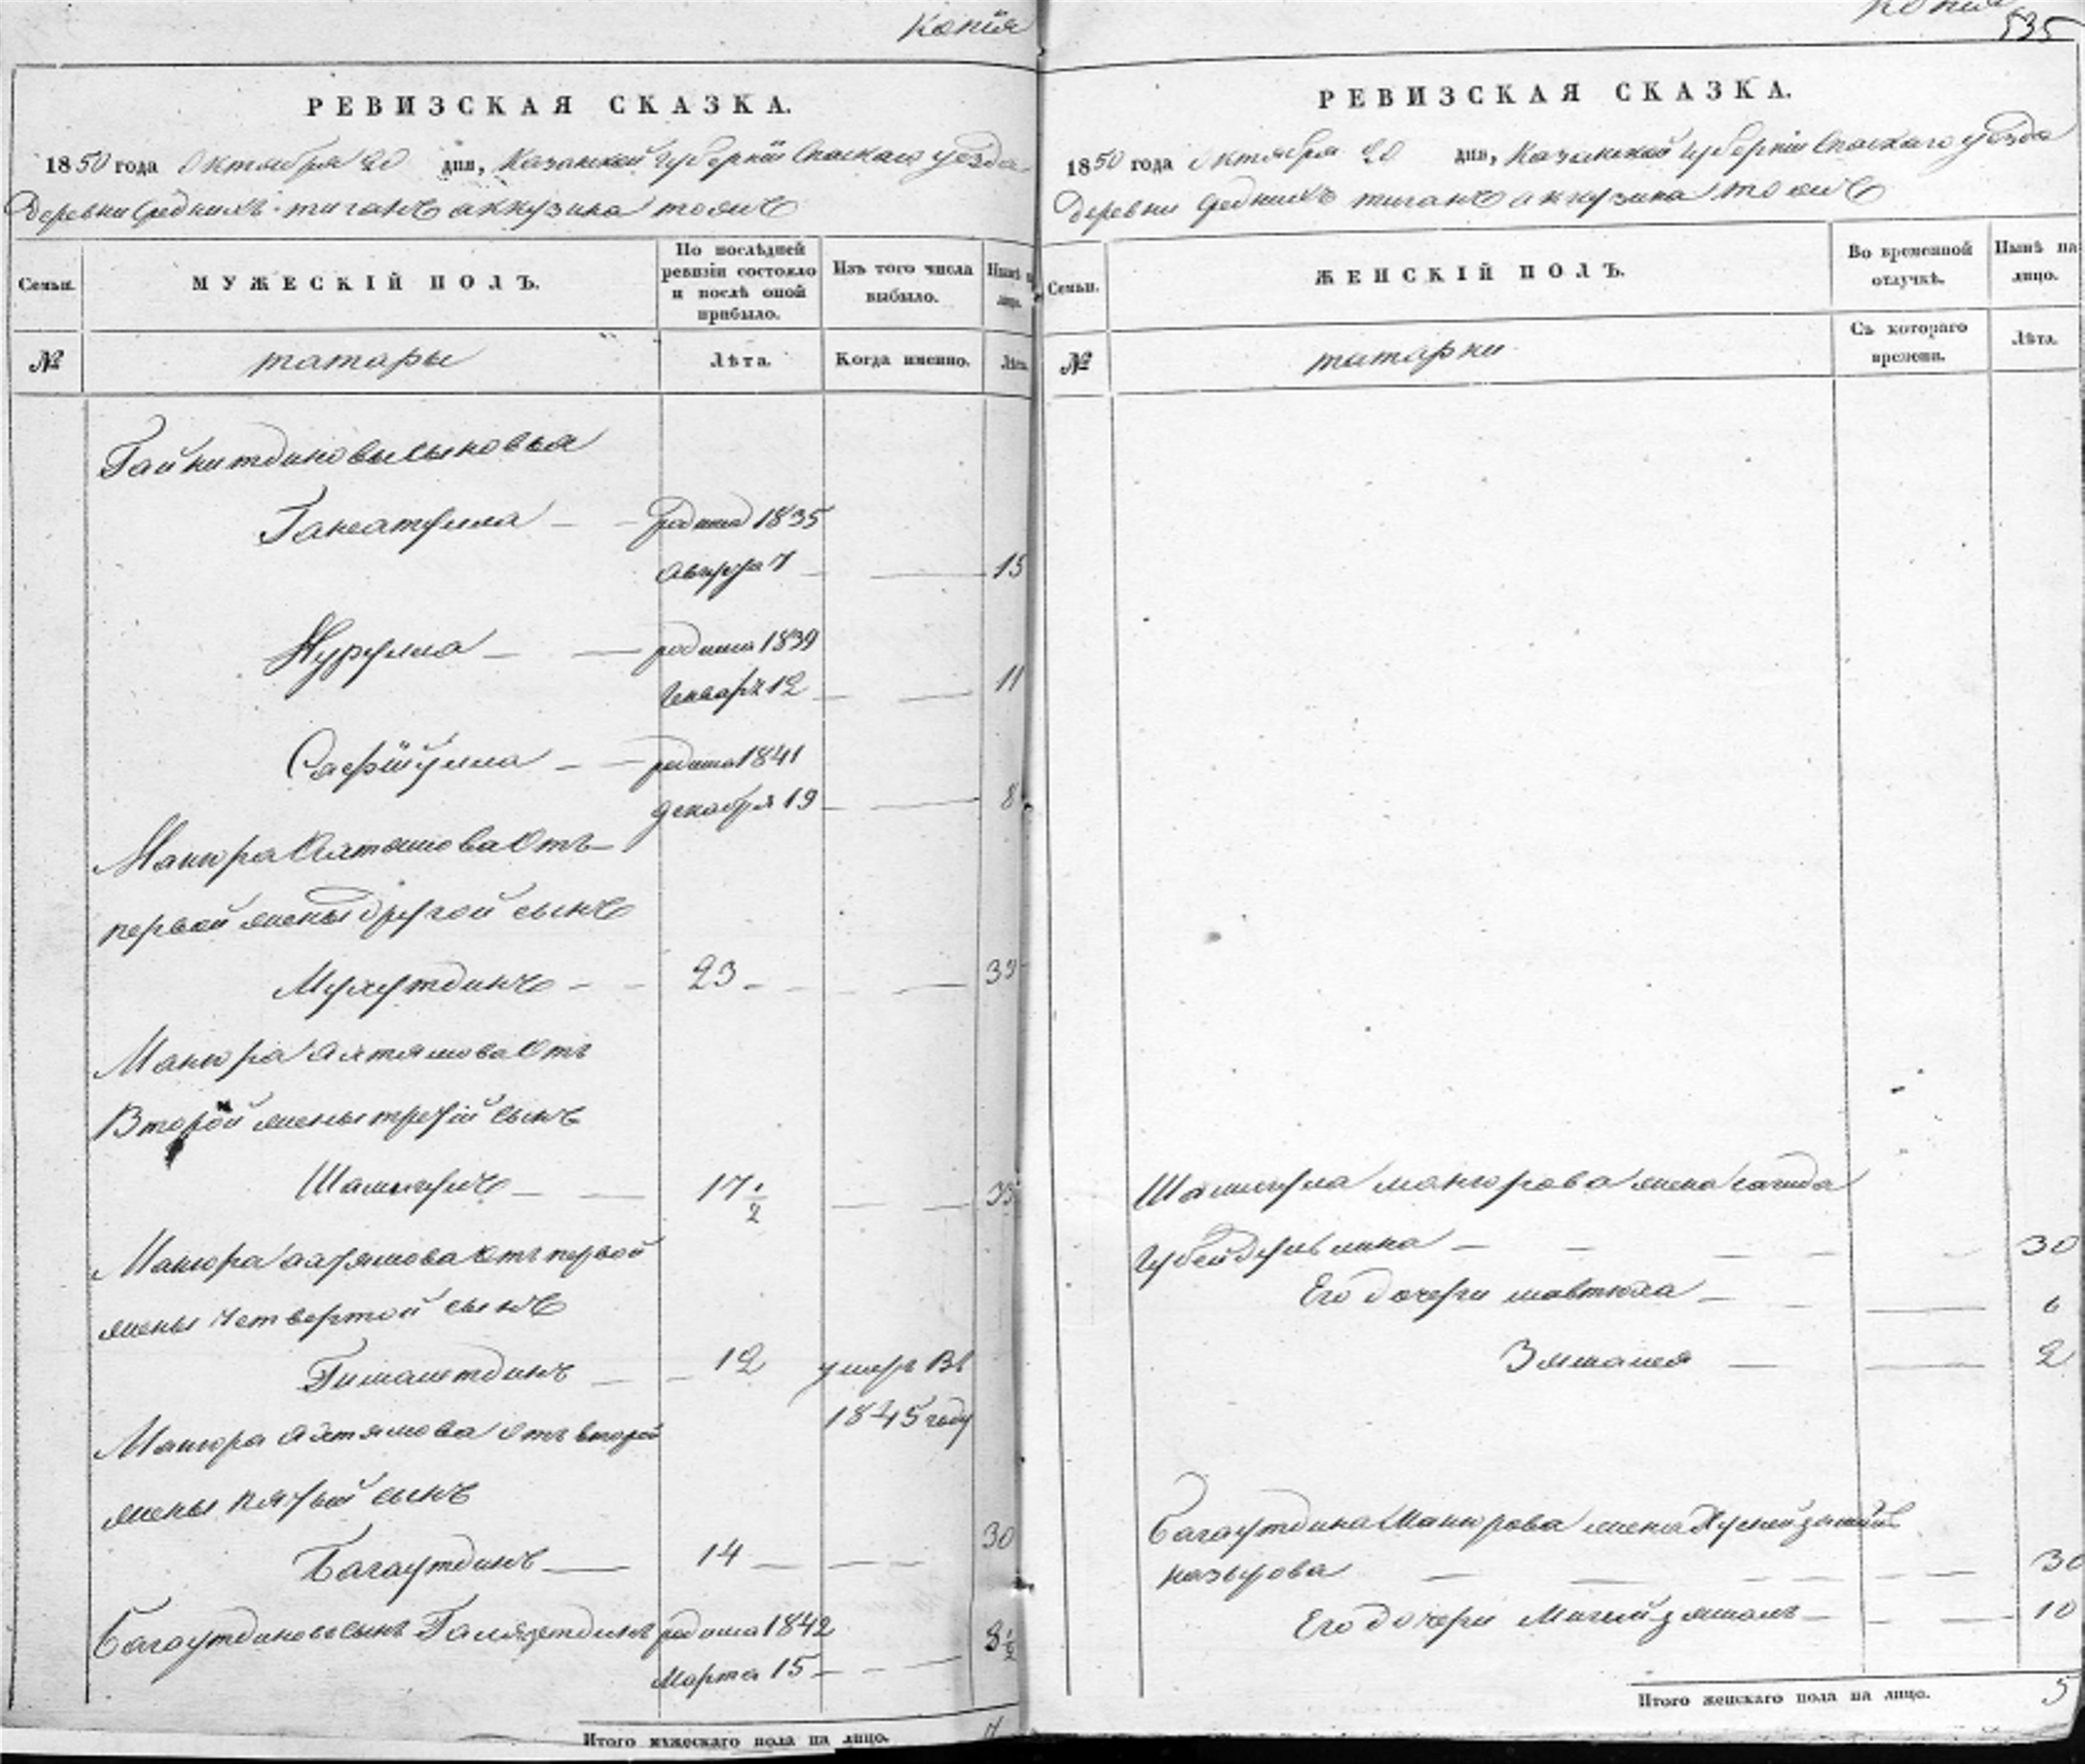 Копія
РЕВИЗСКАЯ СКАЗКА.
1850 года Октября 20 дня, Казанской Губерніи Спаскаго уезда
Деревни Средних тиганъ аккузина тожъ
Семьи. МУЖЕСКІЙ ПОЛЪ. По послѣдней ревизіи состояло и послѣ оной прибыло. Изъ того числа выбыло. Нынѣ на лицо.
№ татары Лѣта. Когда именно. Лѣта.
Гайнитдиновы сыновья
Ганеатулла — родился 1835
Августа 7 — 15
Нурулла — родился 1839
Генваря 12 — 11
Сафіулла — родился 1841
декабря 19 — 8
Манюра Алтямова Отъ
первой жены другой сынъ
Мухутдинъ — 23 — 39
Манюра Алтямова Отъ
Второй жены третій сынъ
Шамигулъ — 17 1/2 — 33
Манюра Алтямова отъ первой
жены четвертой сынъ
Гимаметдинъ — 12 умеръ Въ
1845 году
Манюра Алтямова отъ второй
жены пятый сынъ
Багаутдинъ — 14 — 30
Багаутдиновъ сынъ родился 1842
Марта 15 — 8 1/2
Итого мужескаго пола на лицо. 7
Копія
535
РЕВИЗСКАЯ СКАЗКА.
1850 года Октября 20 дня, Казанской Губерніи Спаскаго уезда
Деревни Средних тиганъ аккузина тожъ
Семьи. ЖЕНСКІЙ ПОЛЪ. Во временной отлучкѣ. Нынѣ на лицо.
№ татарки Съ котораго времени. Лѣта.
Шамигула манюрова жена сагида
Губейдулльина — 30
Его дочери мавтюха — 6
— 2
Багаутдина Манюрова жена
назырова — 30
Его дочери — 10
Итого женскаго пола на лицо. 5